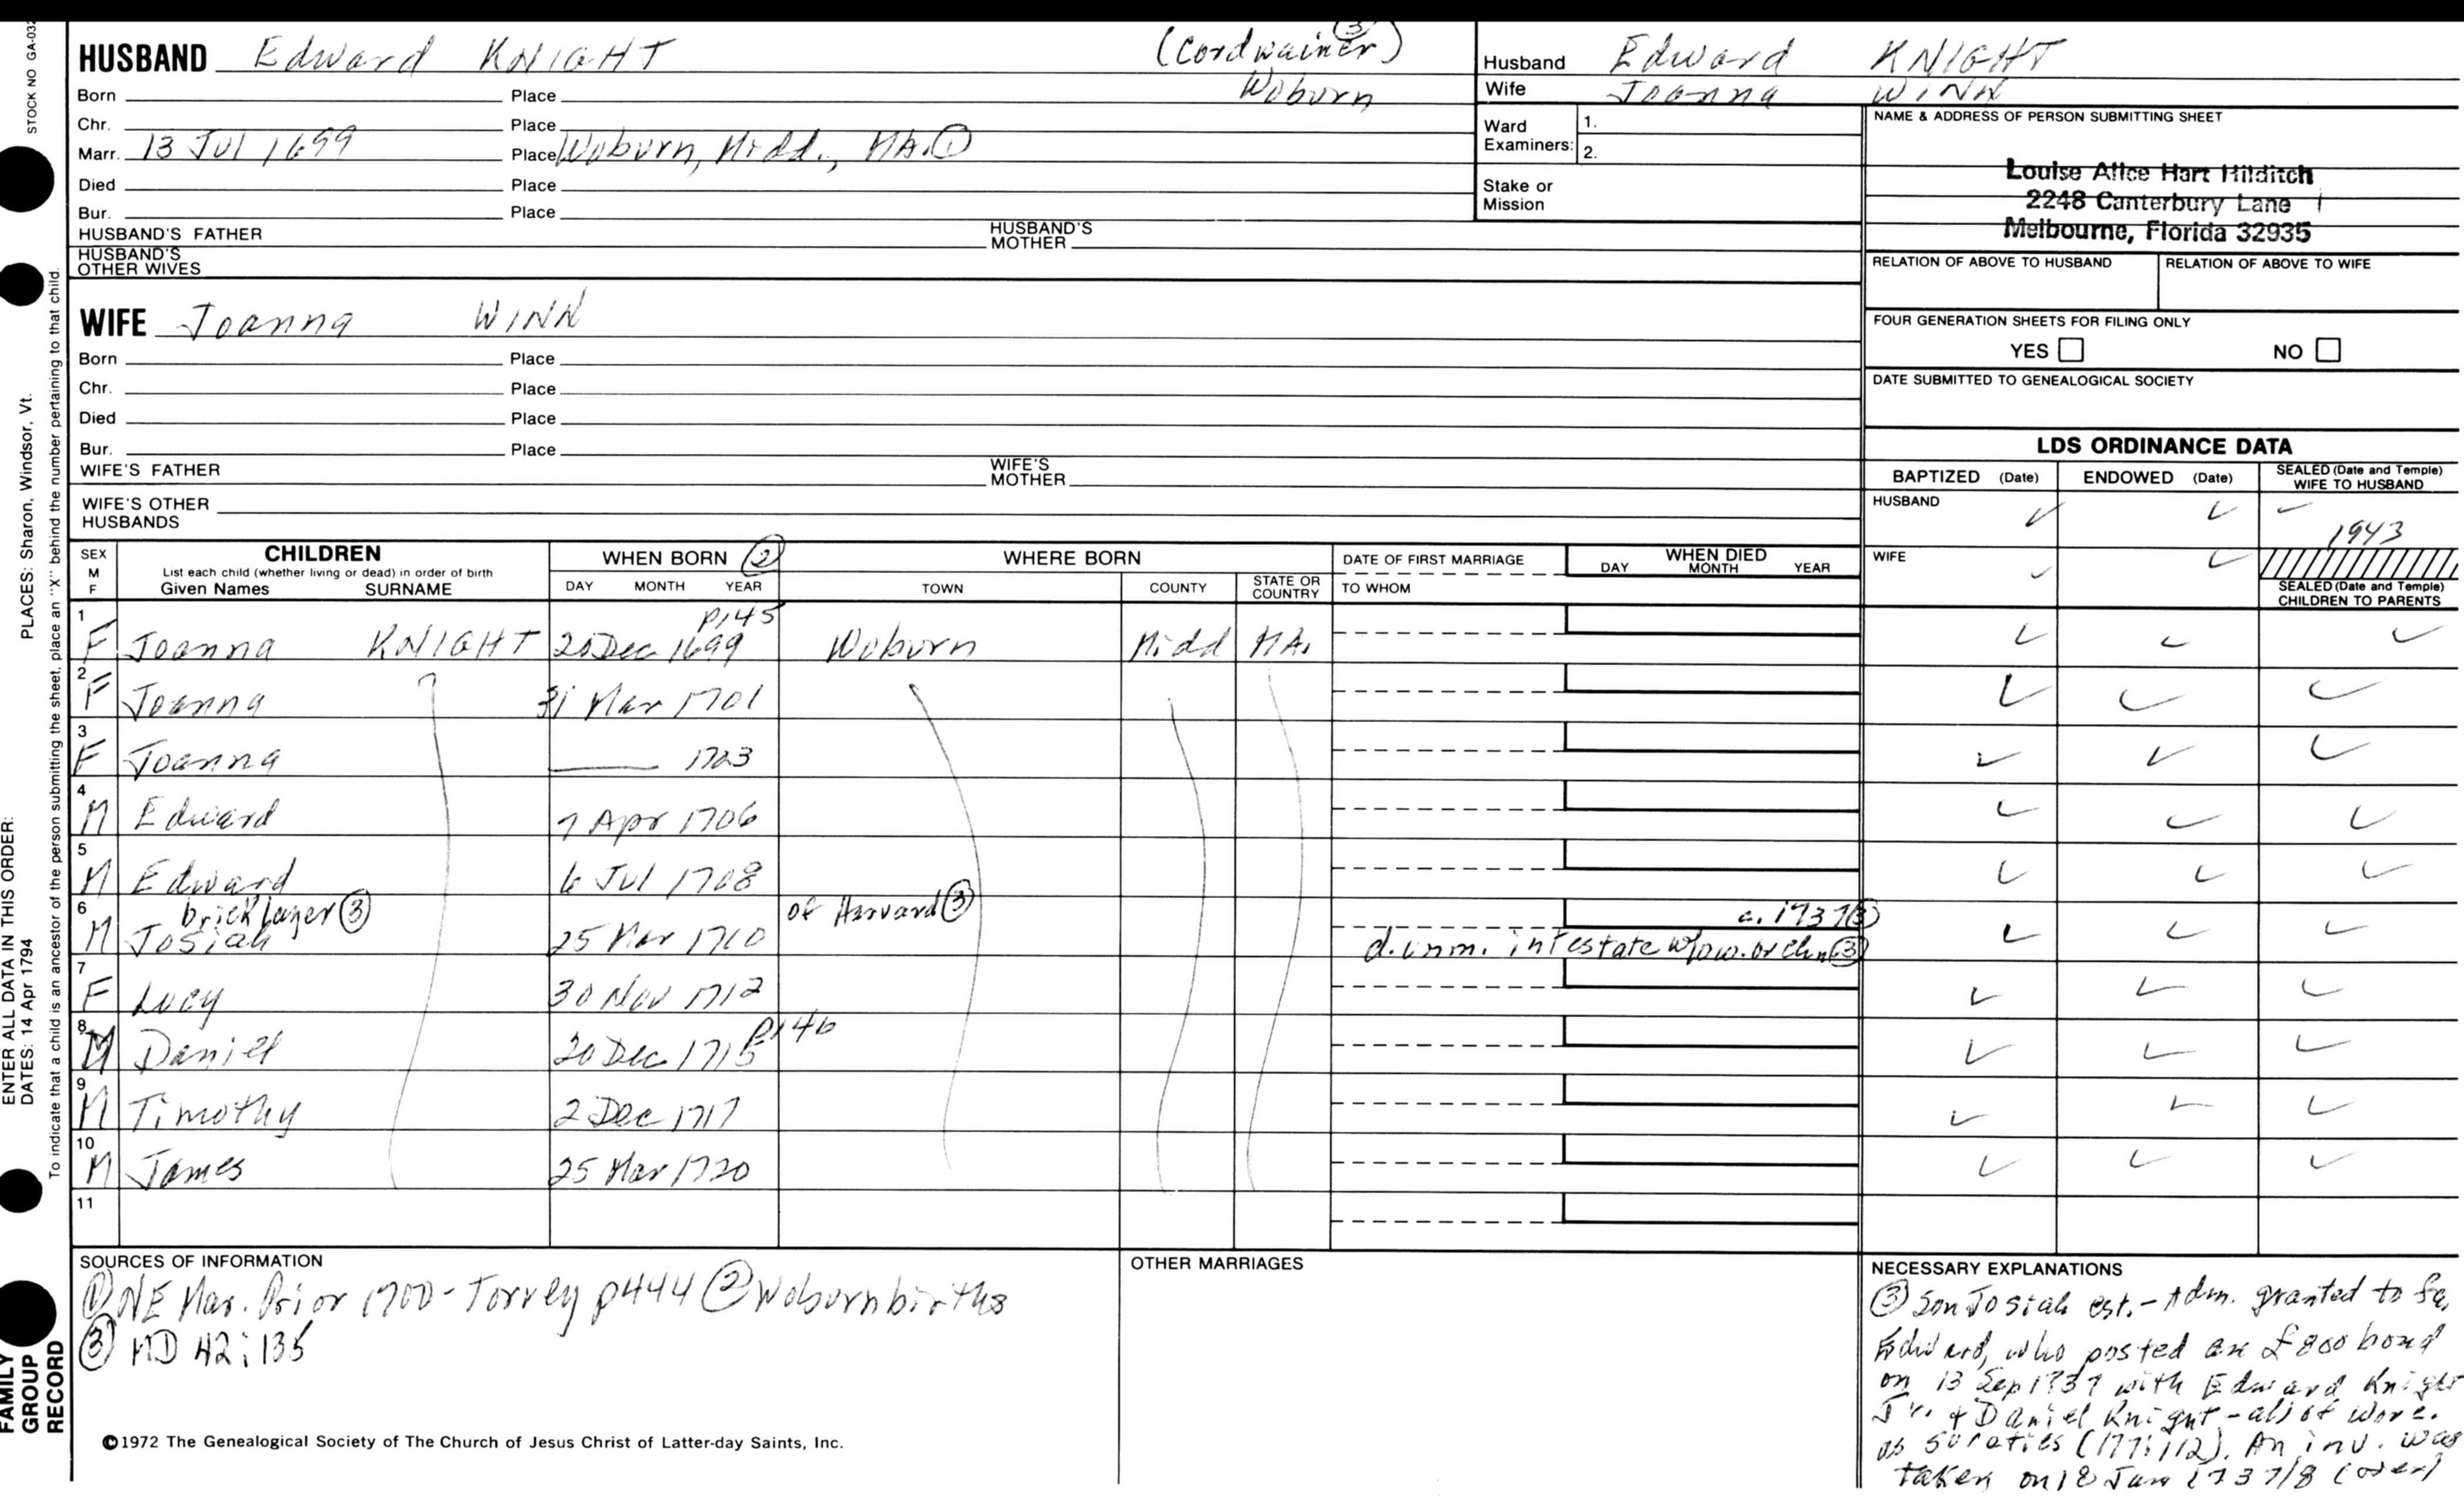 STOCK NO GA-032
HUSBAND Edward KNIGHT (Cordwainer) ③
Born Place Woburn
Chr. Place
Marr. 13 Jul 1699 Place Woburn, Midd., MA. ①
Died Place
Bur. Place
HUSBAND'S FATHER HUSBAND'S MOTHER
HUSBAND'S OTHER WIVES
Husband Edward KNIGHT
Wife Joanna WINN
Ward Examiners: 1.
2.
Stake or Mission
NAME & ADDRESS OF PERSON SUBMITTING SHEET
Louise Alice Hart Hilditch
2248 Canterbury Lane
Melbourne, Florida 32935
RELATION OF ABOVE TO HUSBAND RELATION OF ABOVE TO WIFE
FOUR GENERATION SHEETS FOR FILING ONLY
YES NO
DATE SUBMITTED TO GENEALOGICAL SOCIETY
WIFE Joanna WINN
Born Place
Chr. Place
Died Place
Bur. Place
WIFE'S FATHER WIFE'S MOTHER
WIFE'S OTHER HUSBANDS
LDS ORDINANCE DATA
BAPTIZED (Date) ENDOWED (Date) SEALED (Date and Temple) WIFE TO HUSBAND
HUSBAND ✓ ✓ ✓ 1943
WIFE ✓ ✓
SEALED (Date and Temple) CHILDREN TO PARENTS
SEX M F CHILDREN WHEN BORN ② WHERE BORN DATE OF FIRST MARRIAGE WHEN DIED
List each child (whether living or dead) in order of birth
Given Names SURNAME DAY MONTH YEAR TOWN COUNTY STATE OR COUNTRY TO WHOM DAY MONTH YEAR
p145
1 F Joanna KNIGHT Dec 1699 Woburn Midd MA. ✓ ✓ ✓
2 F Joanna 31 Mar 1701 ✓ ✓ ✓
3 F Joanna —— ✓ ✓ ✓
4 M Edward 7 Apr 1706 ✓ ✓ ✓
5 M Edward 6 Jul 1708 ✓ ✓ ✓
6 bricklayer ③ of Harvard ③ c. 1737 ③
M Josiah 25 Mar 1710 d. unm. intestate w/o w. or chn ③ ✓ ✓ ✓
7 F Lucy 30 Nov 1712 ✓ ✓ ✓
p146
8 M Daniel 20 Dec 1715 ✓ ✓ ✓
9 M Timothy 2 Dec 1717 ✓ ✓ ✓
10 M James 25 Mar 1720 ✓ ✓ ✓
11
SOURCES OF INFORMATION
① NE Mar. Prior 1700 - Torrey p444 ② Woburn births
③ MD 42:135
OTHER MARRIAGES
NECESSARY EXPLANATIONS
③ Son Josiah est. - Adm. granted to fa,
Edward, who posted an £800 bond
on 13 Sep 1737 with Edward Knight
Jr. & Daniel Knight - all of Worc.
as sureties. An inv. was
taken on 18 Jan 1737/8 (over)
©1972 The Genealogical Society of The Church of Jesus Christ of Latter-day Saints, Inc.
FAMILY GROUP RECORD
ENTER ALL DATA IN THIS ORDER:
DATES: 14 Apr 1794 PLACES: Sharon, Windsor, Vt.
To indicate that a child is an ancestor of the person submitting the sheet, place an "X" behind the number pertaining to that child.